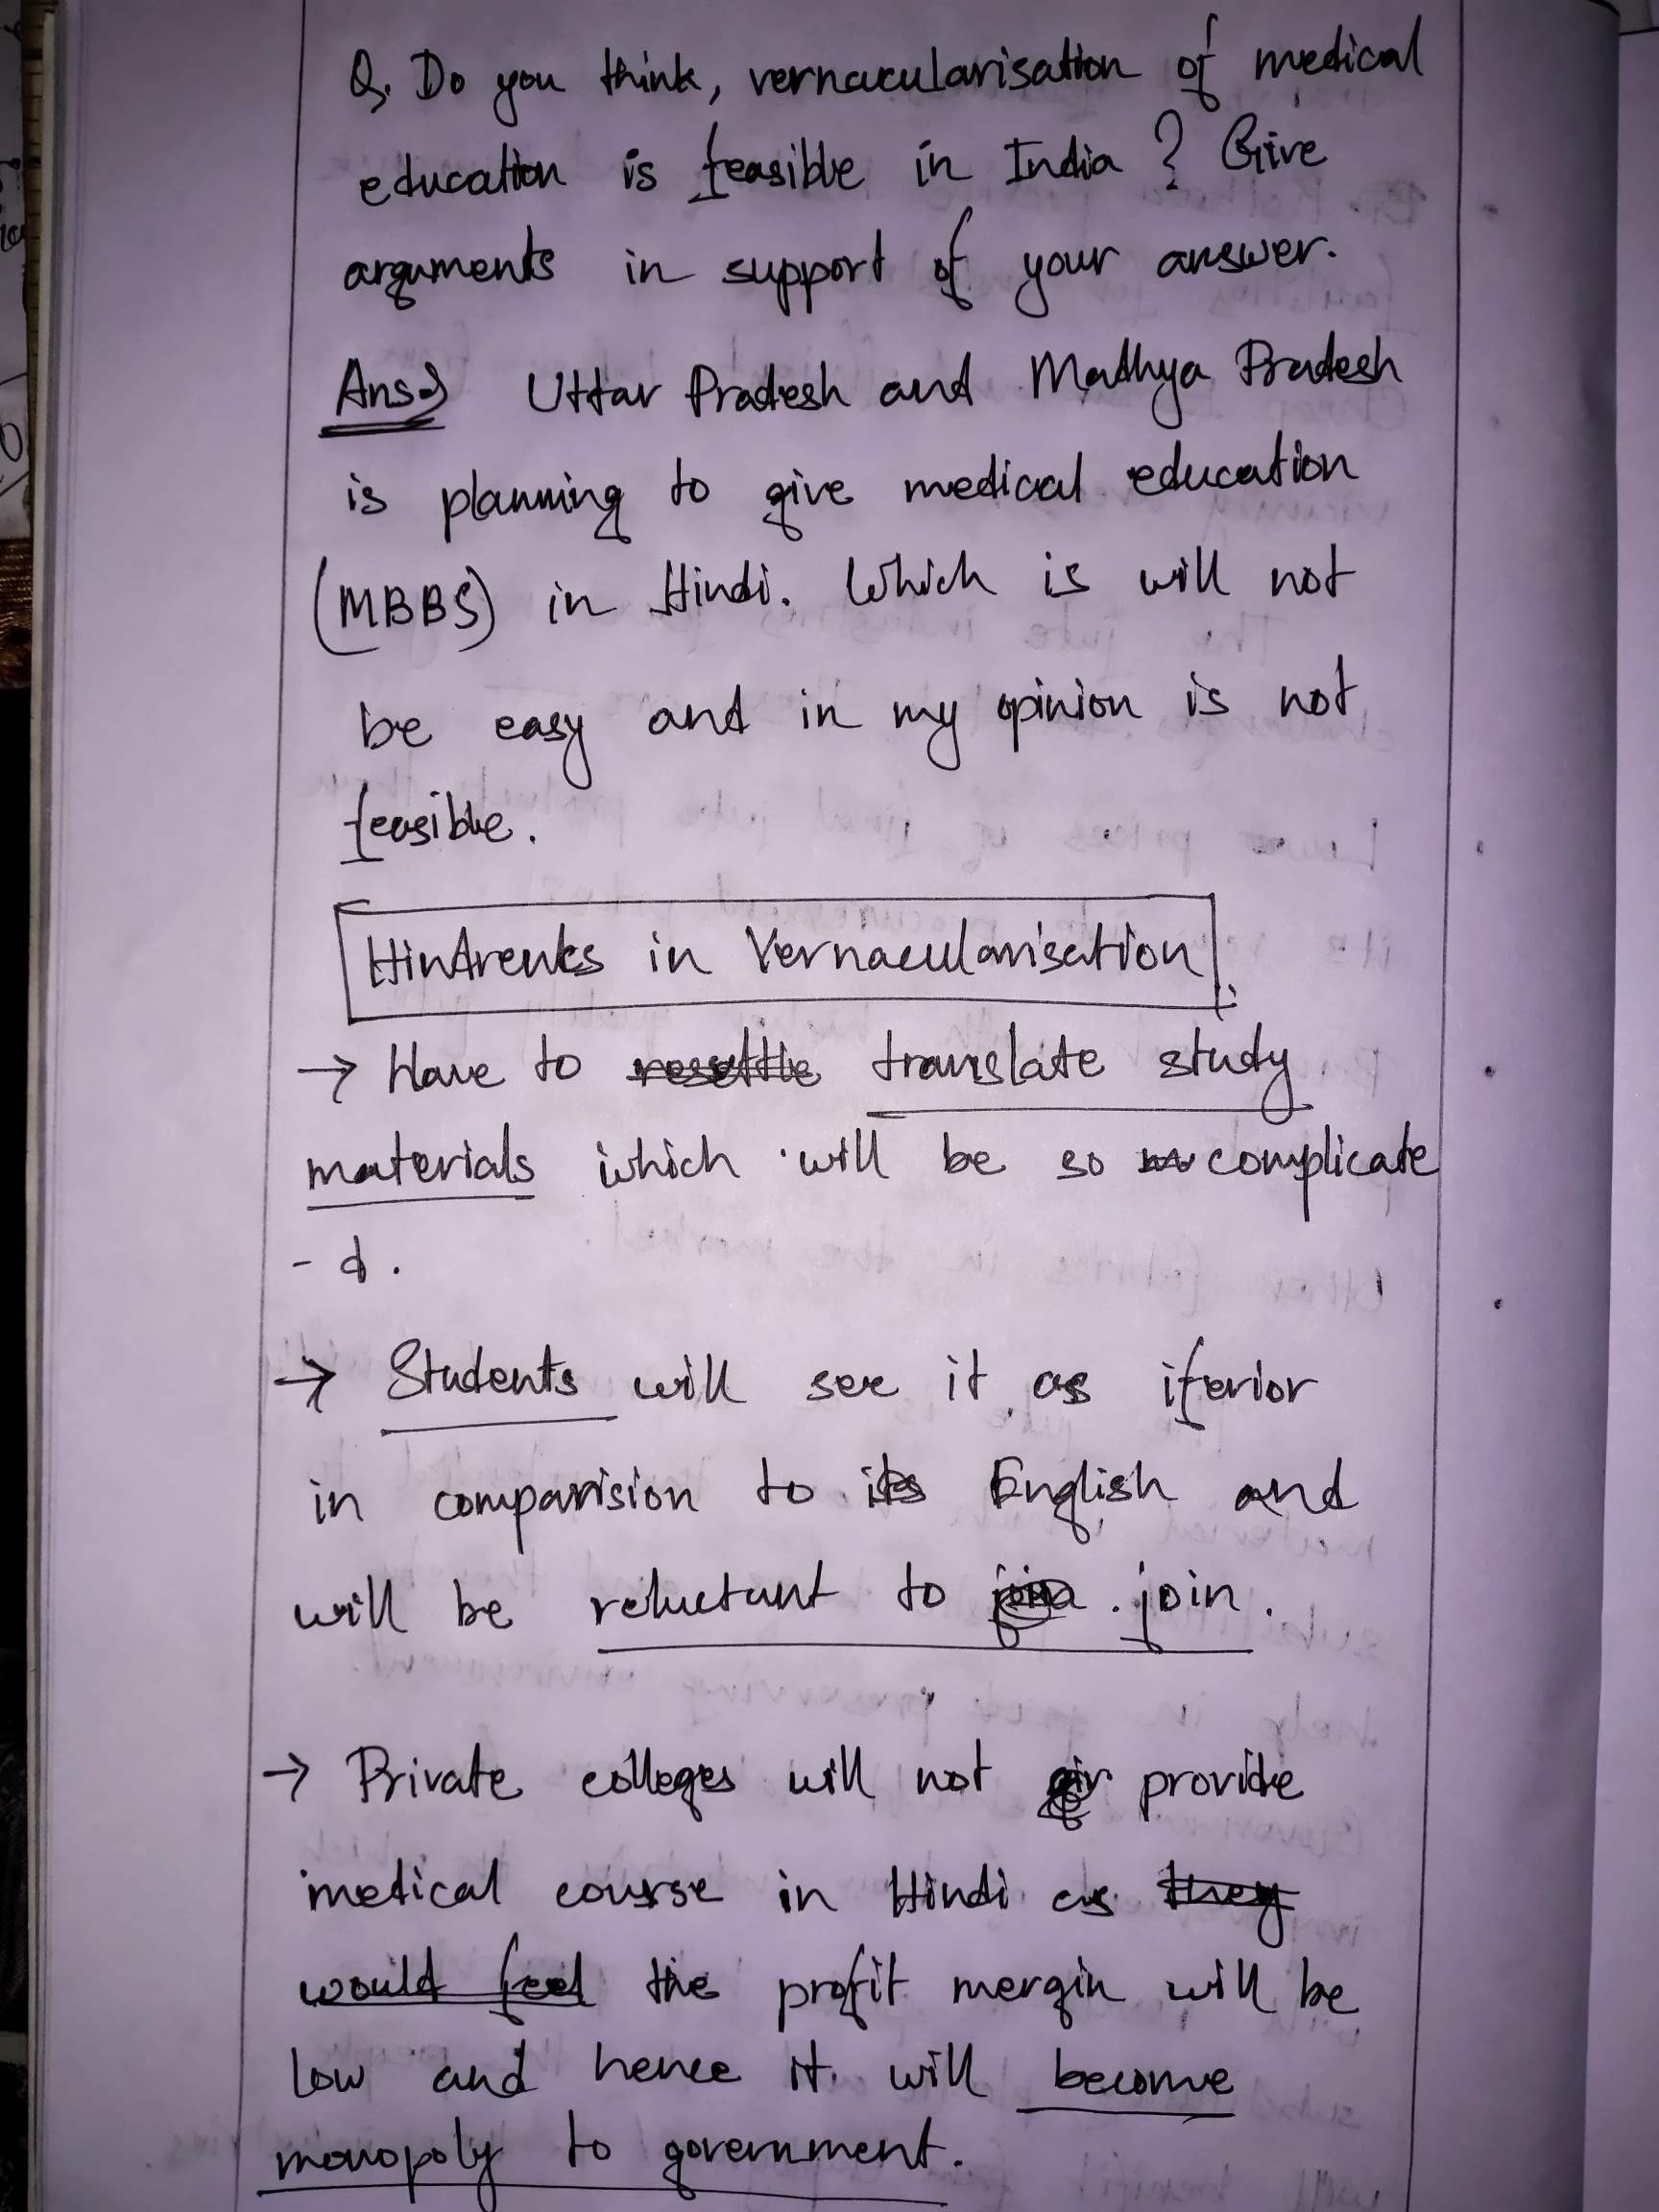 Q. Do you think, vernacularisation of medical
education is feasible in India? Give
arguments in support of your answer.
Ans→ Uttar Pradesh and Madhya Pradesh
is planning to give medical education
(MBBS) in Hindi. Which is will not
be easy and in my opinion is not
feasible.
Hindrenks in Vernacularisation
→ Have to resettle translate study
materials which will be so complicate
-d.
→ Students will see it as iferior
in comparision to its English and
will be reluctant to join. join.
→ Private colleges will not provide
medical course in Hindi as they
would feel the profit mergin will be
low and hence it will become
monopoly to government.